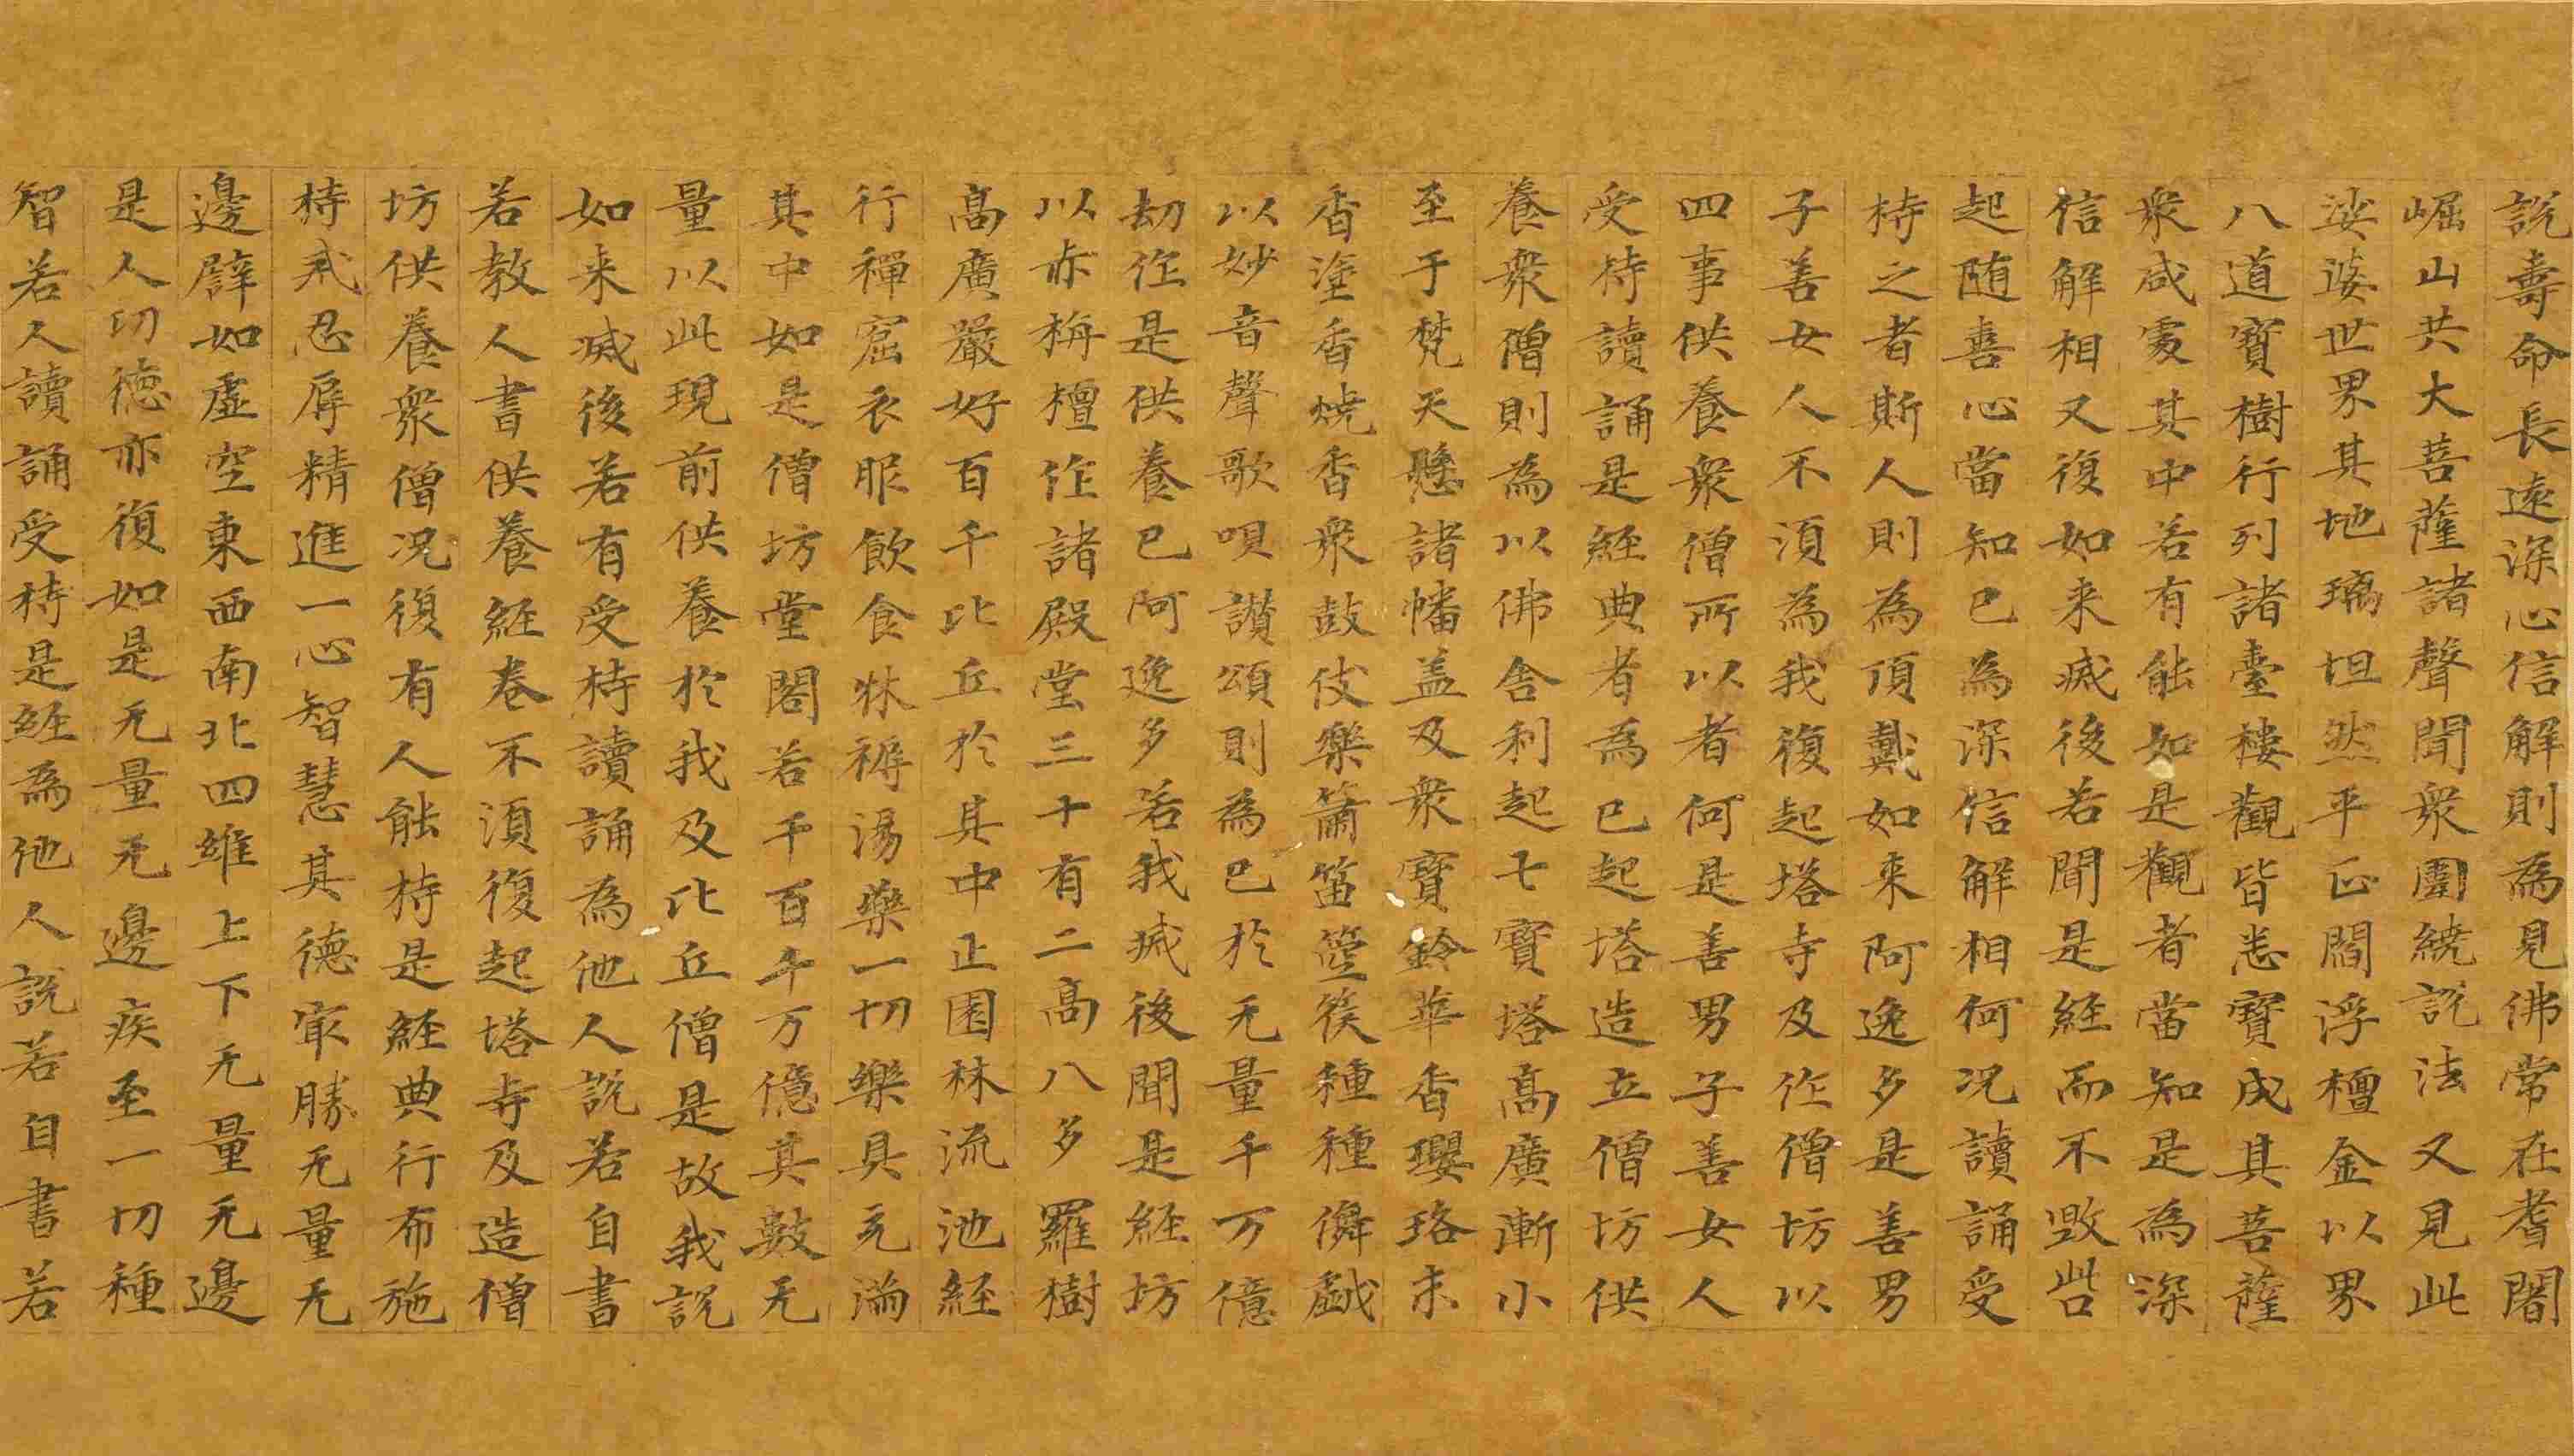 說壽命長遠深心信解則為見佛常在耆闍
崛山共大菩薩諸聲聞衆圍繞說法又見此
娑婆世界其地瑠璃坦然平正閻浮檀金以界
八道寶樹行列諸臺樓觀皆悉寶成其菩薩
衆咸處其中若有能如是觀者當知是為深
信解相又復如来滅後若聞是經而不毀呰
起随喜心當知已為深信解相何况讀誦受
持之者斯人則為頂戴如來阿逸多是善男
子善女人不湏為我復起塔寺及作僧坊以
四事供養衆僧所以者何是善男子善女人
受持讀誦是經典者為已起塔造立僧坊供
養衆僧則為以佛舎利起七寶塔高廣漸小
至于梵天懸諸幡盖及衆寶鈴華香瓔珞末
香塗香燒香衆鼓伎樂簫笛箜篌種種儛戲
以妙音聲歌唄讃頌則為已於无量千万億
劫作是供養已阿逸多若我滅後聞是經坊
以赤栴檀作諸殿堂三十有二高八多羅樹
高廣嚴好百千比丘於其中止園林流池經
行禪窟衣服飲食牀褥湯藥一切樂具充滿
其中如是僧坊堂閣若干百千万億其數无
量以此現前供養於我及比丘僧是故我說
如来滅後若有受持讀誦為他人說若自書
若教人書供養經卷不湏復起塔寺及造僧
坊供養衆僧况復有人能持是經典行布施
持戒忍辱精進一心智慧其德冣勝无量无
邊譬如虛空東西南北四維上下无量无邊
是人功徳亦復如是无量无邊疾至一切種
智若人讀誦受持是經為他人說若自書若